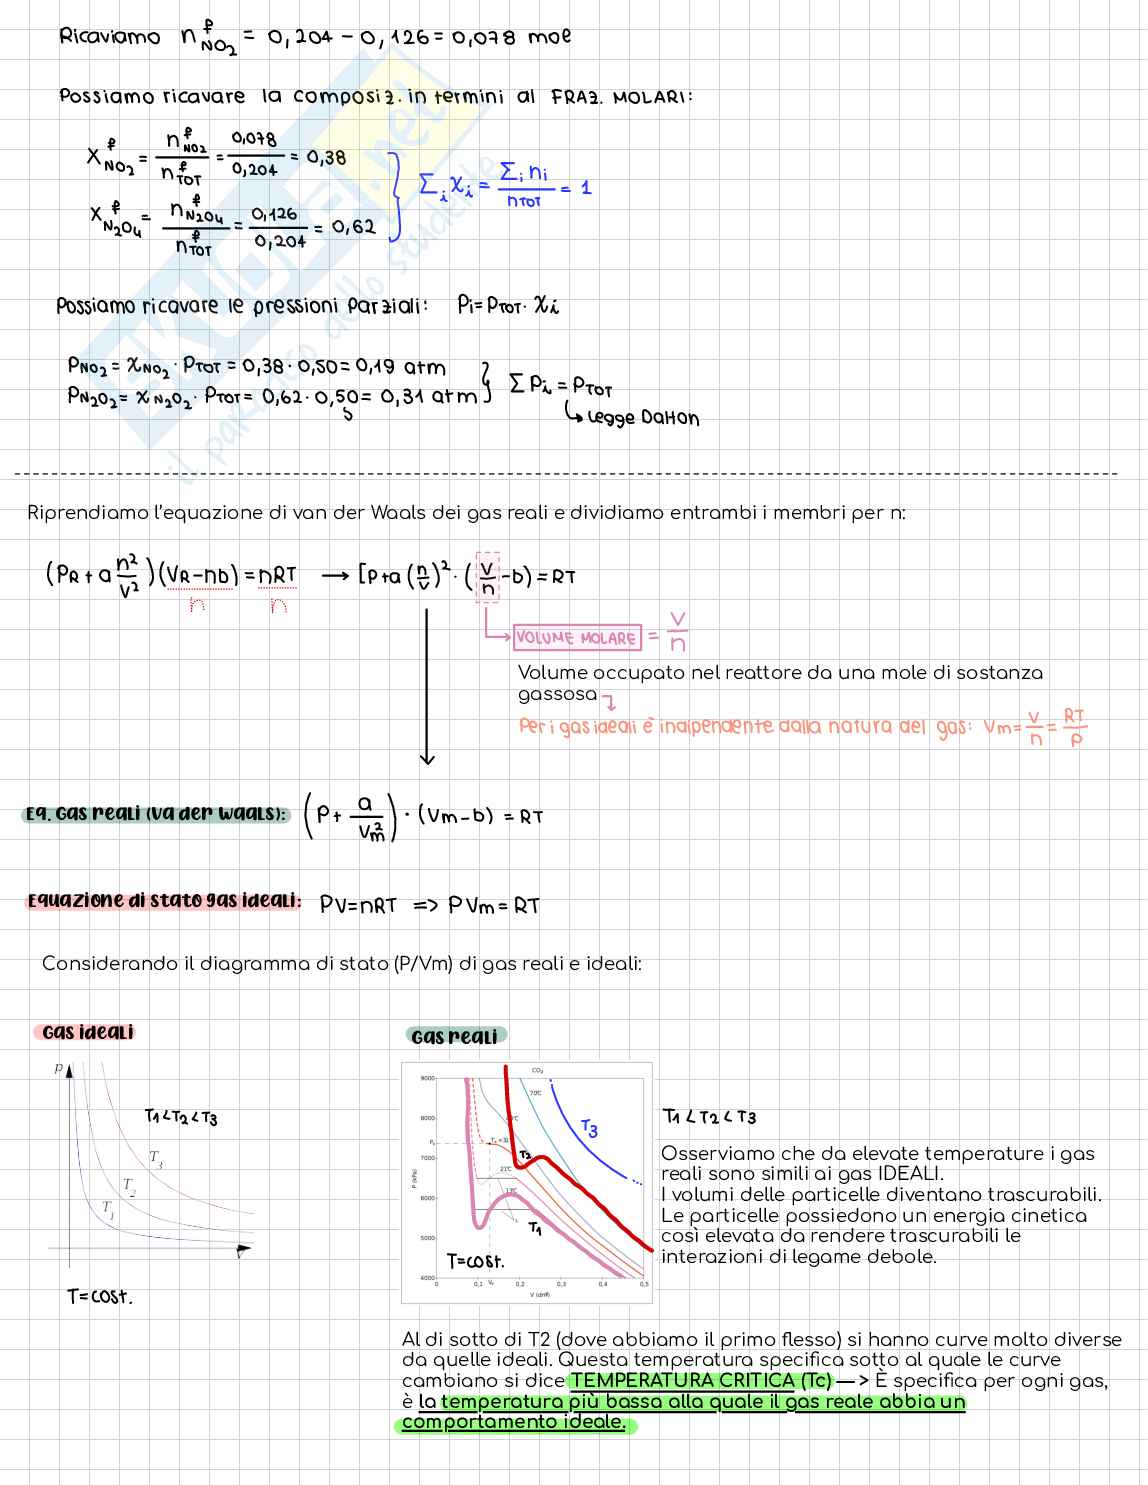 Ricaviamo n^f_NO2 = 0,204 - 0,126 = 0,078 mol
Possiamo ricavare la composiz. in termini al FRAZ. MOLARI:
X^f_NO2 = n^f_NO2 / n^f_TOT = 0,078 / 0,204 = 0,38
X^f_N2O4 = n^f_N2O4 / n^f_TOT = 0,126 / 0,204 = 0,62
Σi χi = Σi ni / nTOT = 1
Possiamo ricavare le pressioni parziali: Pi = PTOT · χi
PNO2 = χNO2 · PTOT = 0,38 · 0,50 = 0,19 atm
PN2O2 = χN2O2 · PTOT = 0,62 · 0,50 = 0,31 atm
Σ Pi = PTOT
↳ Legge Dalton
Riprendiamo l'equazione di van der Waals dei gas reali e dividiamo entrambi i membri per n:
(PR + a n²/V²)(VR - nb) = nRT → [P + a (n/V)² · (V/n - b) = RT
n n
VOLUME MOLARE = V/n
Volume occupato nel reattore da una mole di sostanza
gassosa
Per i gas ideali è indipendente dalla natura del gas: Vm = V/n = RT/P
Eq. Gas reali (Va der Waals): (P + a/Vm²) · (Vm - b) = RT
Equazione di stato gas ideali: PV = nRT => PVm = RT
Considerando il diagramma di stato (P/Vm) di gas reali e ideali:
Gas ideali
Gas reali
P
T1 < T2 < T3
T3
T2
T1
V
T = cost.
CO2
9000
8000
7000
6000
5000
4000
P (kPa)
70°C
21°C
13°C
T3
T2
T1
T = cost.
0 0,1 0,2 0,3 0,4 0,5
V (dm³)
T1 < T2 < T3
Osserviamo che da elevate temperature i gas
reali sono simili ai gas IDEALI.
I volumi delle particelle diventano trascurabili.
Le particelle possiedono un energia cinetica
così elevata da rendere trascurabili le
interazioni di legame debole.
Al di sotto di T2 (dove abbiamo il primo flesso) si hanno curve molto diverse
da quelle ideali. Questa temperatura specifica sotto al quale le curve
cambiano si dice TEMPERATURA CRITICA (Tc) —> È specifica per ogni gas,
è la temperatura più bassa alla quale il gas reale abbia un
comportamento ideale.